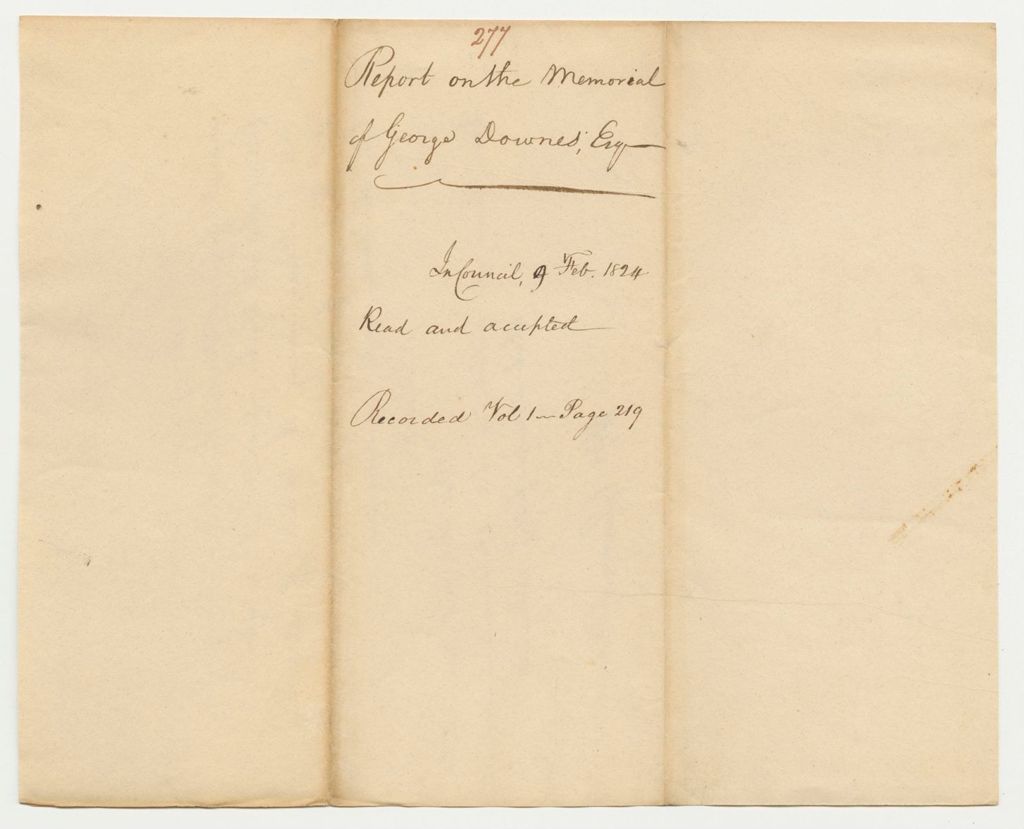 277
Report on the Memorial
of George Downes, Esq
In Council, 9 Feb. 1824
Read and accepted
Recorded Vol 1 - Page 219